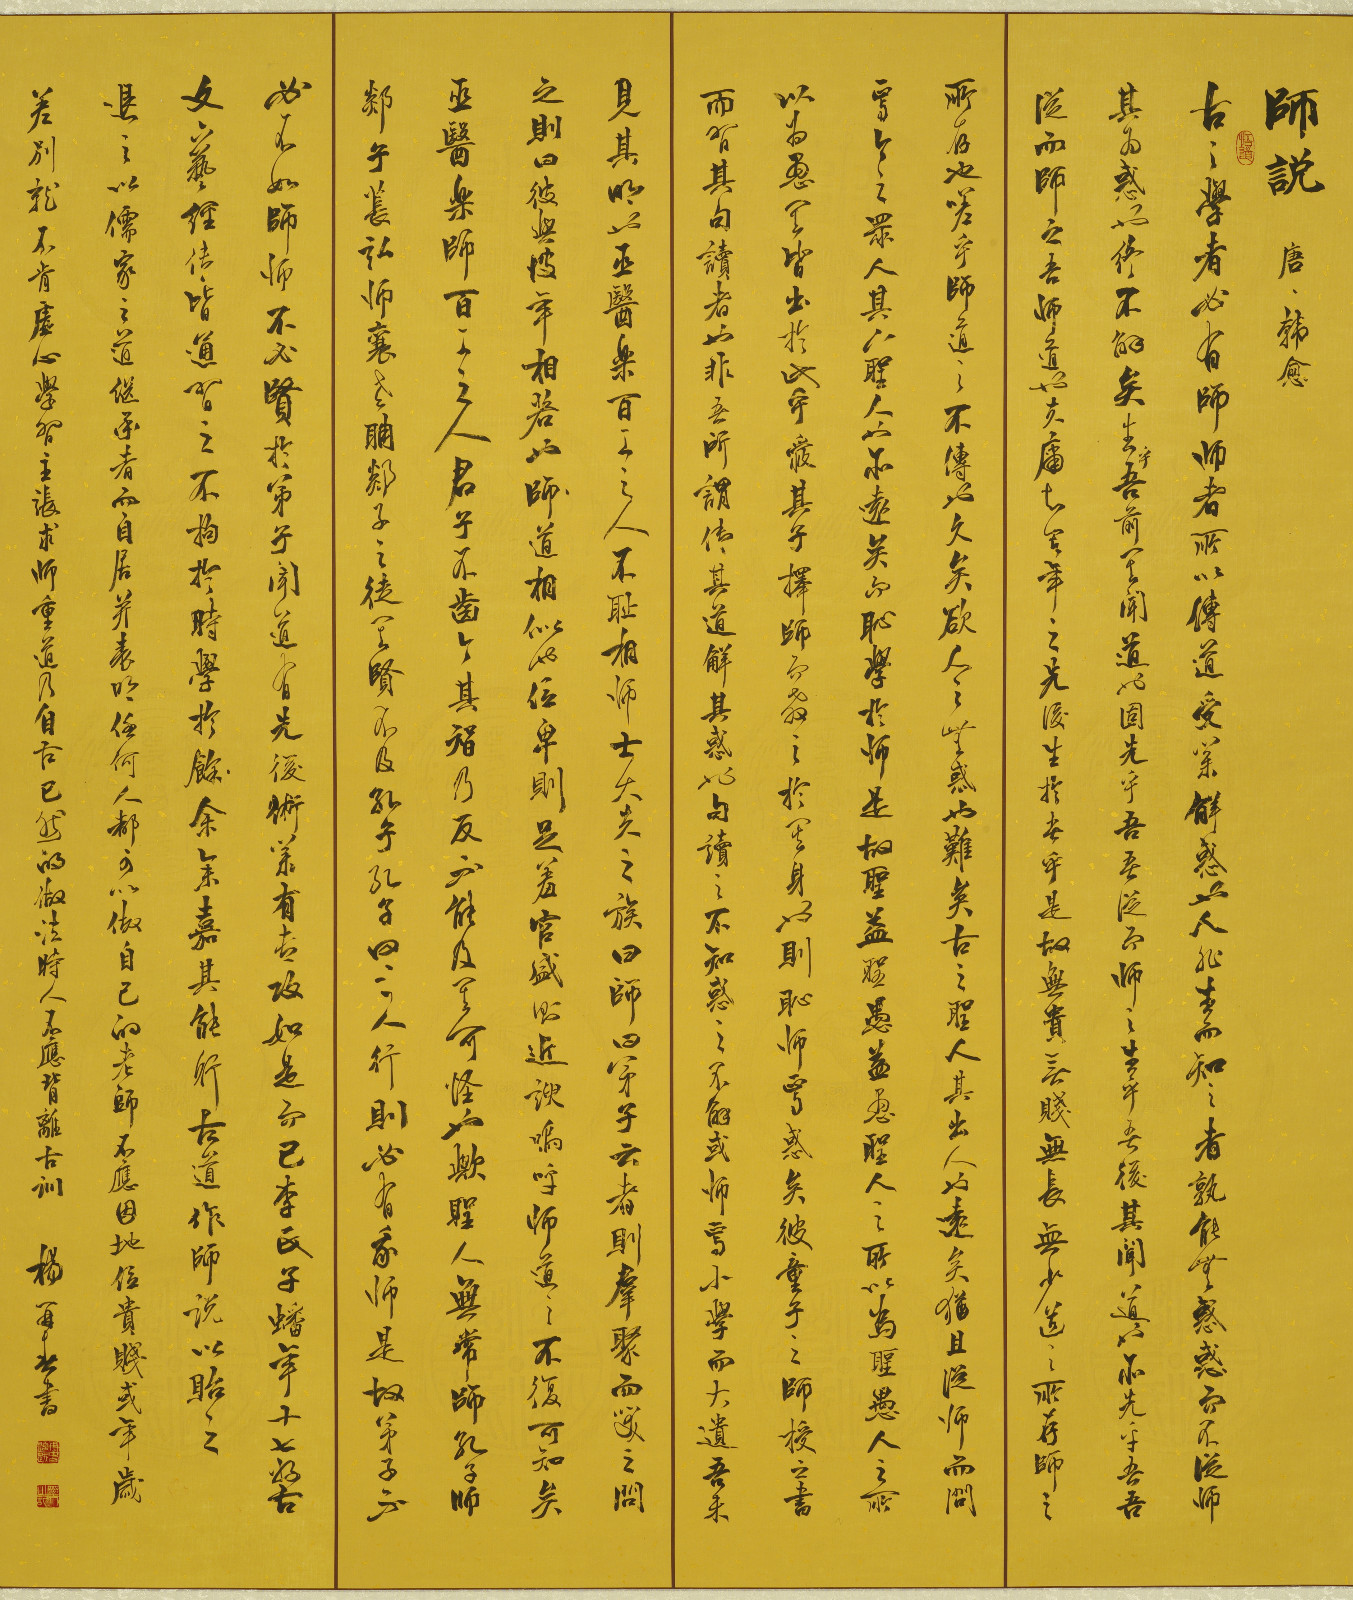 師説 唐、韓愈
古之學者必有師師者所以傳道受業解惑也人非生而知之者孰能無惑惑而不從師
其為惑也終不解矣生乎吾前其聞道也固先乎吾吾從而師之生乎吾後其聞道也亦先乎吾吾
從而師之吾師道也夫庸知其年之先後生於吾乎是故無貴無賤無長無少道之所存師之
所存也嗟乎師道之不傳也久矣欲人之無惑也難矣古之聖人其出人也遠矣猶且從師而問
焉今之眾人其下聖人也亦遠矣而恥學於師是故聖益聖愚益愚聖人之所以為聖愚人之所
以為愚其皆出於此乎愛其子擇師而教之於其身也則恥師焉惑矣彼童子之師授之書
而習其句讀者也非吾所謂傳其道解其惑也句讀之不知惑之不解或師焉小學而大遺吾未
見其明也巫醫樂百工之人不耻相師士大夫之族曰師曰弟子云者則羣聚而笑之問
之則曰彼與彼年相若也師道相似也位卑則足羞官盛則近諛嗚呼師道之不復可知矣
巫醫樂師百工之人君子不齒今其智乃反不能及其可怪也歟聖人無常師孔子師
郯子萇弘師襄老聃郯子之徒其賢不及孔子孔子曰三人行則必有我師是故弟子不
必不如師師不必賢於弟子聞道有先後術業有專攻如是而已李氏子蟠年十七好古
文六藝經傳皆通習之不拘於時學於余余嘉其能行古道作師説以貽之
退之以儒家之道繼承者而自居并表明任何人都可以做自己的老師不應因地位貴賤或年歲
差別就不肯虛心學習主張求師重道乃自古已然的做法時人不應背離古訓 楊 書